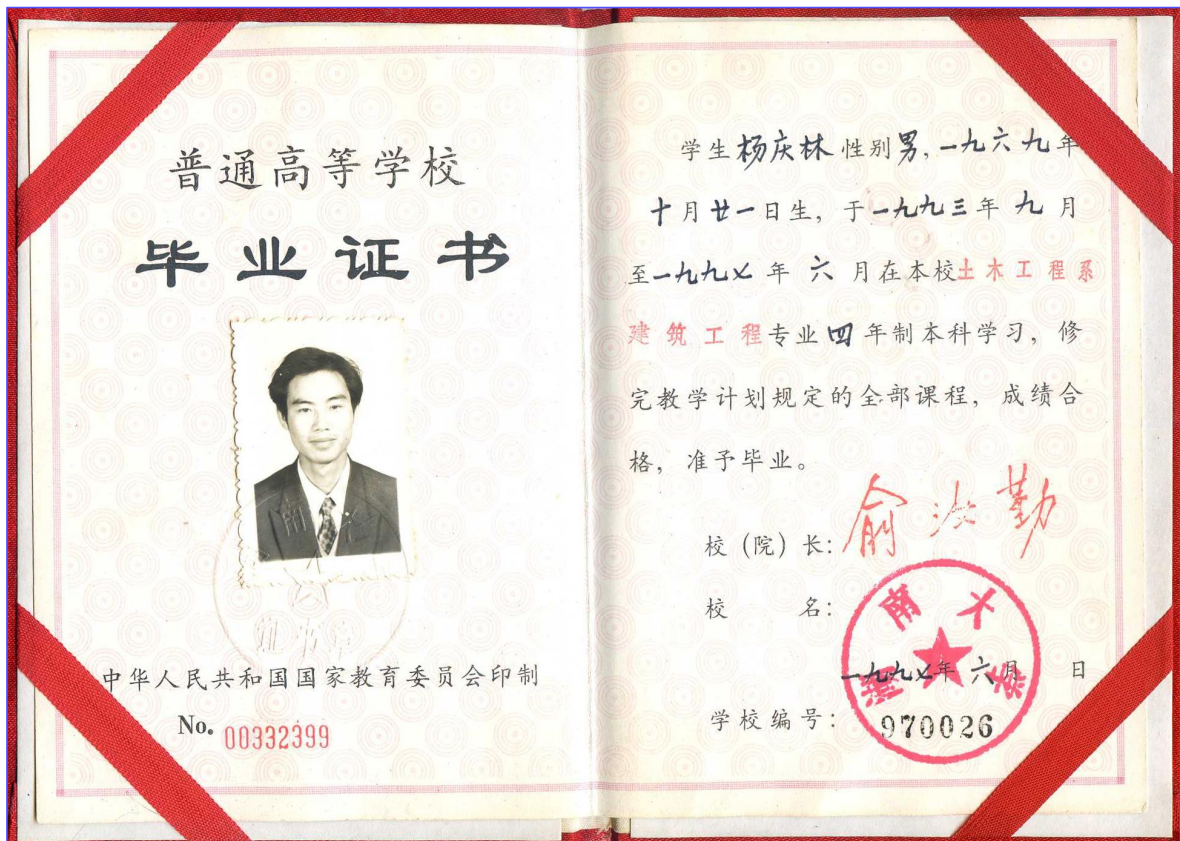 普通高等学校
毕业证书
中华人民共和国国家教育委员会印制
No. 00332399
学生杨庆林性别男，一九六九年
十月廿一日生，于一九九三年九月
至一九九七年六月在本校土木工程系
建筑工程专业四年制本科学习，修
完教学计划规定的全部课程，成绩合
格，准予毕业。
校（院）长：俞汝勤
校名：
湖南大学
一九九七年六月 日
学校编号：970026